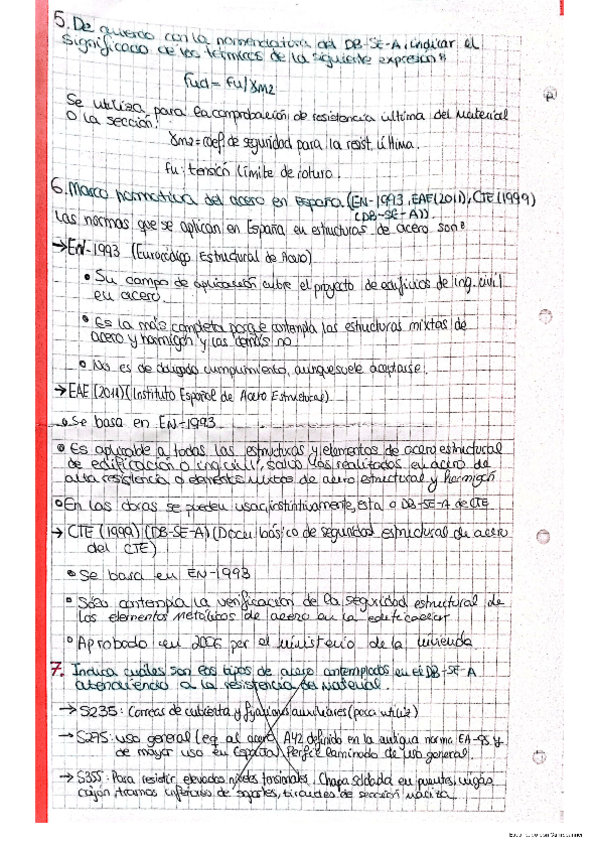 5. De acuerdo con la nomenclatura del DB-SE-A, indicar el
significado de los términos de la siguiente expresión:
fud = fu/γm2
Se utiliza para la comprobación de resistencia última del material
o la sección:
γm2 = coef. de seguridad para la resist. última.
fu: tensión límite de rotura.
6. Marco normativa del acero en España (EN-1993, EAE (2011), CTE (1999)
(DB-SE-A)).
Las normas que se aplican en España en estructuras de acero son:
→ EN-1993 (Eurocódigo Estructural de Acero)
• Su campo de aplicación cubre el proyecto de edificios de ing. civil
en acero.
• Es la más completa porque contempla las estructuras mixtas de
acero y hormigón y las demás no.
• No es de obligado cumplimiento, aunque suele aceptarse.
→ EAE (2011) (Instituto Español de Acero Estructuras)
• Se basa en EN-1993
• Es aplicable a todas las estructuras y elementos de acero estructural
de edificación o ing. civil, salvo las realizados en acero de
alta resistencia o elementos mixtos de acero estructural y hormigón
• En las obras se pueden usar, instintivamente, esta o DB-SE-A de CTE
→ CTE (1999) (DB-SE-A) (Docu básico de seguridad estructural de acero
del CTE)
• Se basa en EN-1993
• Sólo contempla la verificación de la seguridad estructural de
los elementos metálicos de acero en la edificación
• Aprobado en 2006 por el ministerio de la vivienda
7. Indica cuáles son los tipos de acero contemplados en el DB-SE-A
atendiendo a la resistencia del material.
→ S235: Correas de cubierta y fijaciones auxiliares (poca utiliz)
→ S275: uso general (eq. al acero A42 definido en la antigua norma EA-95 y
de mayor uso en España) Perfil laminado de uso general.
→ S355: Para resistir elevados niveles tensionales. Chapa soldada en puentes, vigas
cajón, tramos inferiores de soportes, tirantes de sección maciza.